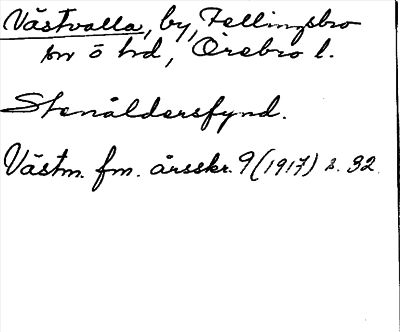 Västvalla, by, Fellingsbro
sn ö hd, Örebro l.
Stenåldersfynd.
Västm. fm. årsskr. 9 (1917) s. 92.